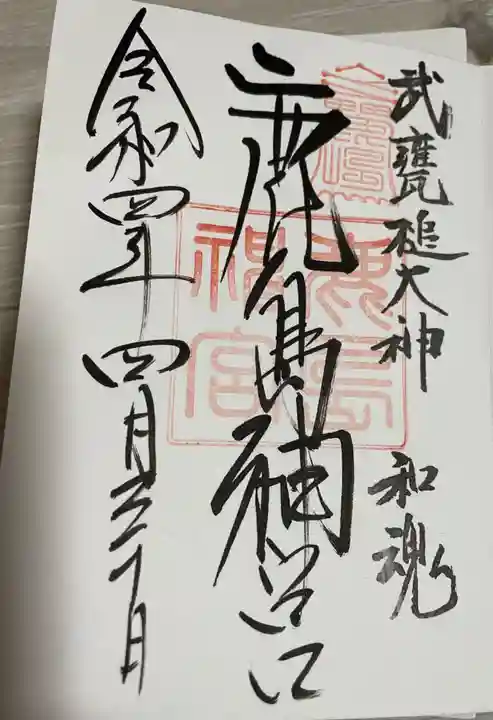 武甕槌大神 和魂
鹿島神宮
鹿島
神宮
令和四年四月三十日